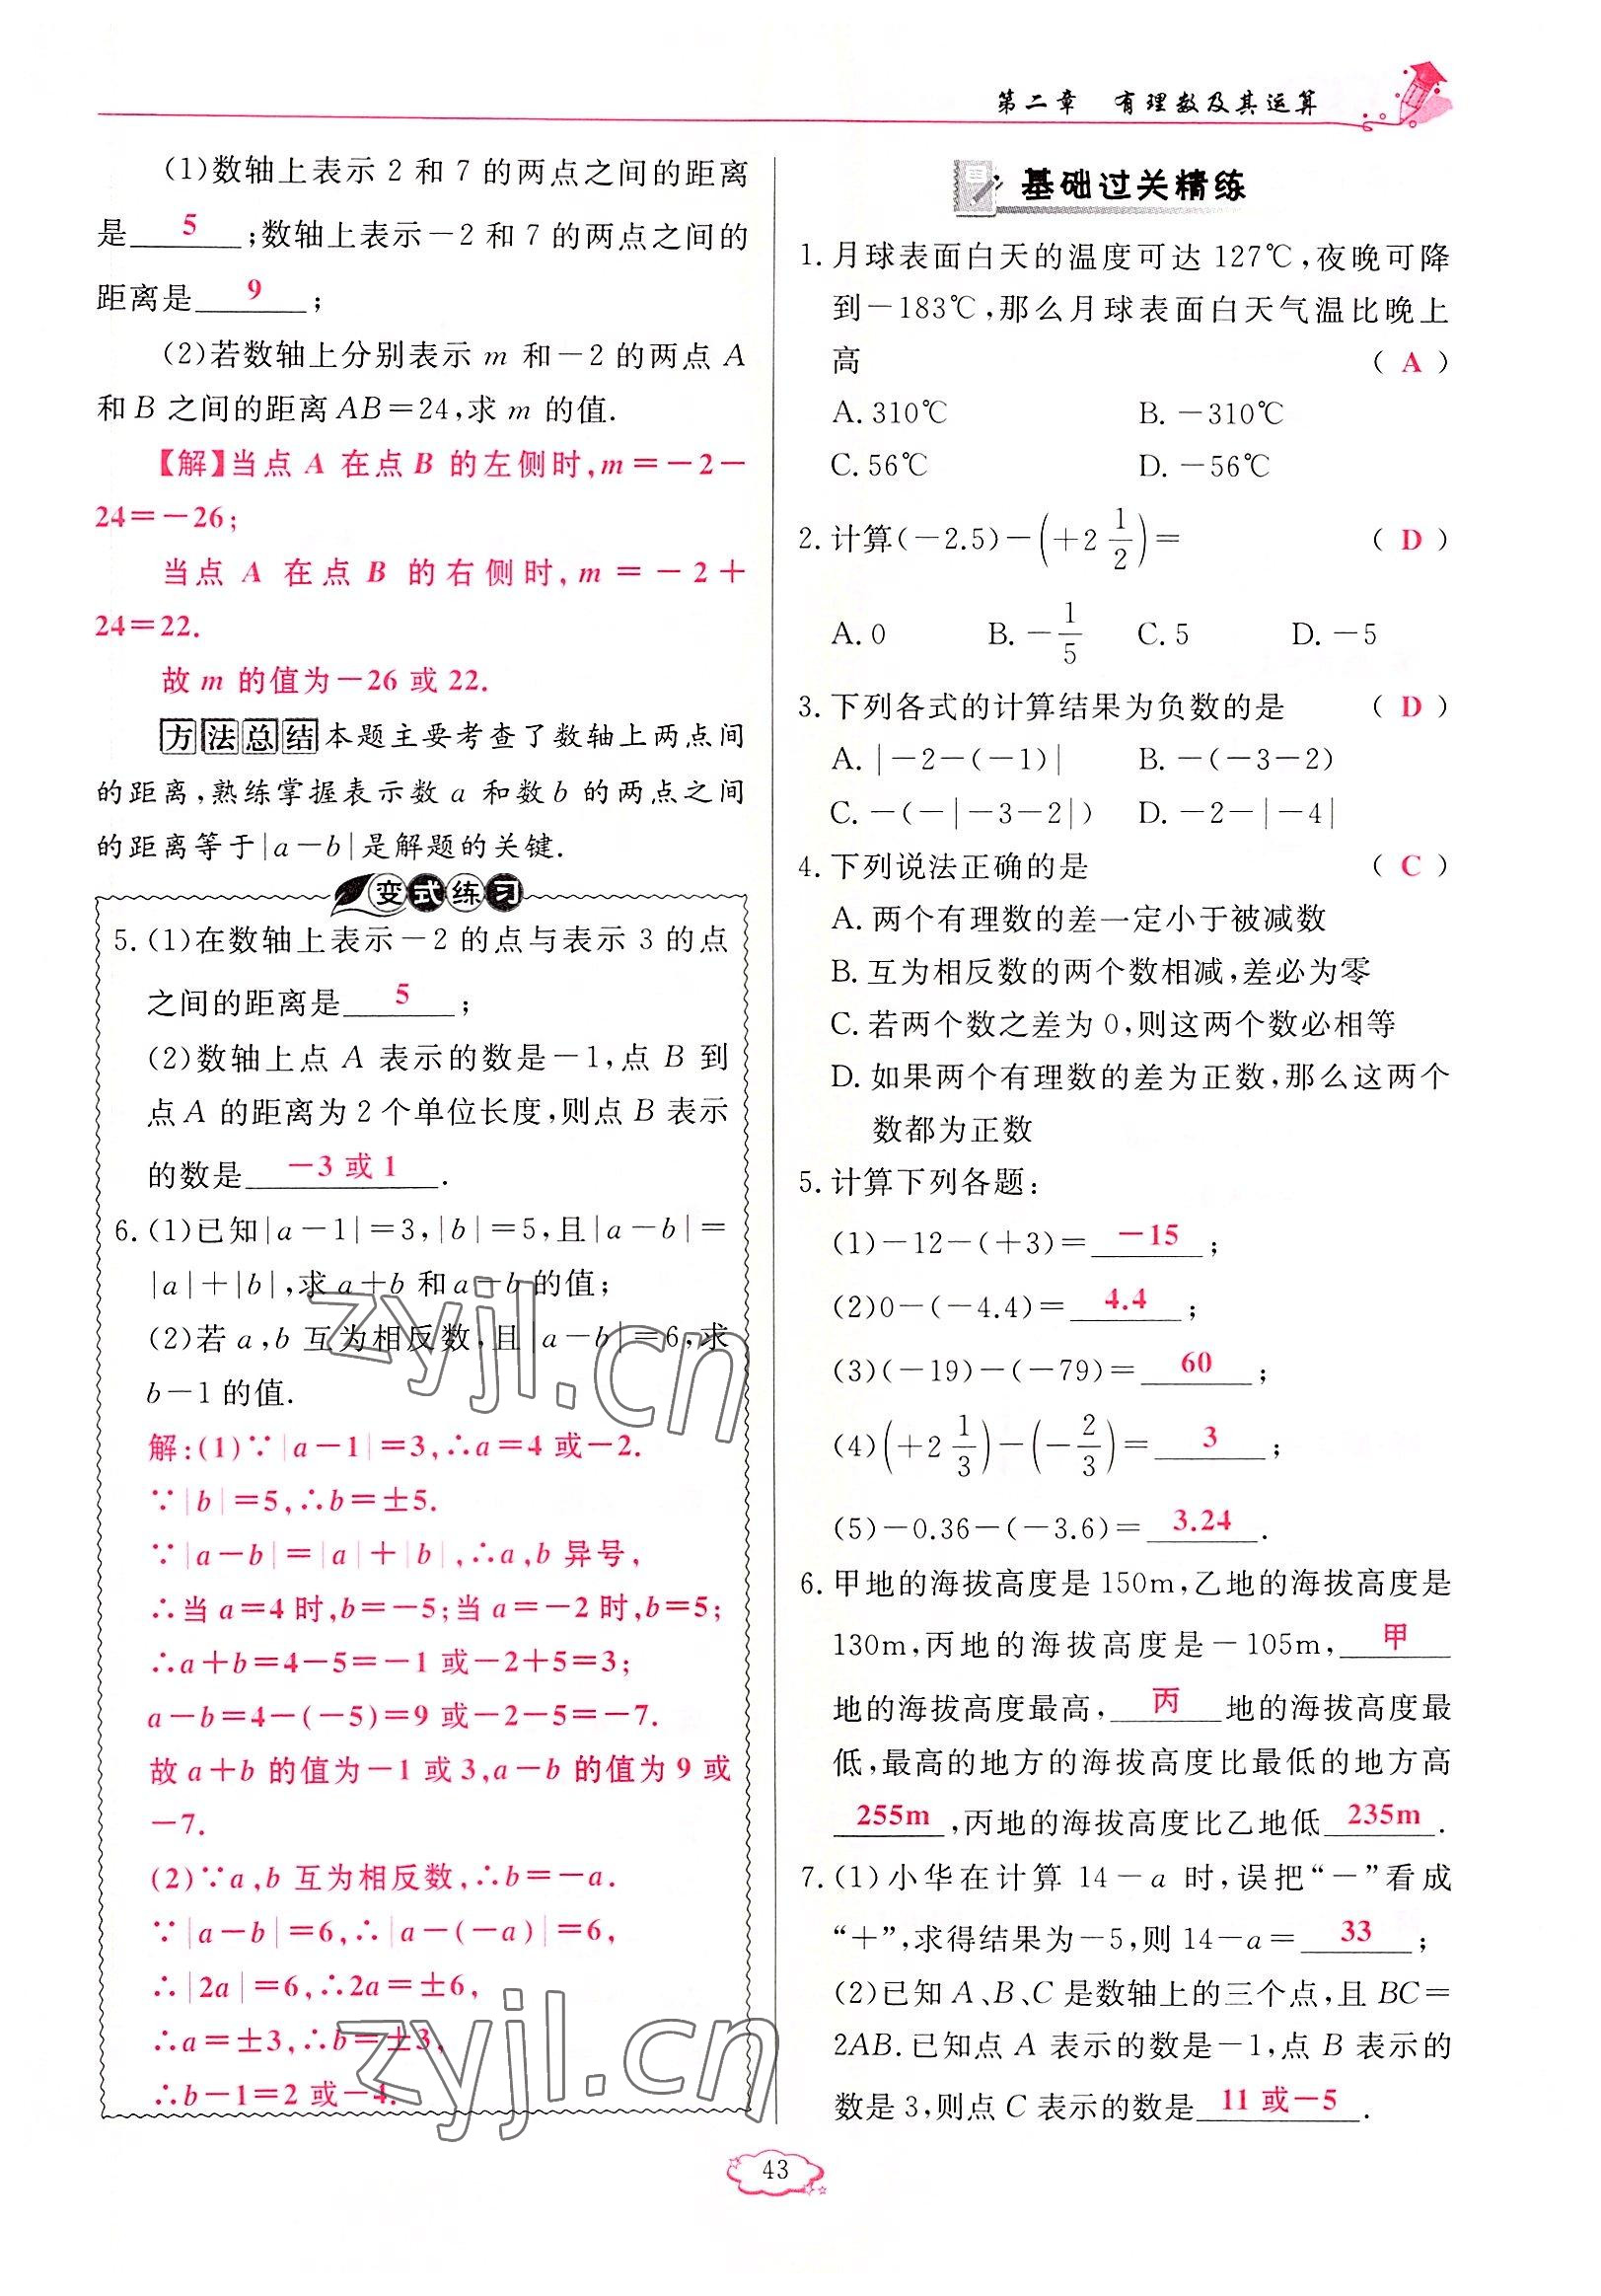 第二章 有理数及其运算
(1)数轴上表示 2 和 7 的两点之间的距离
是 5 ;数轴上表示-2 和 7 的两点之间的
距离是 9 ;
(2)若数轴上分别表示 m 和-2 的两点 A
和 B 之间的距离 AB=24,求 m 的值.
【解】当点 A 在点 B 的左侧时,m=-2-
24=-26;
当点 A 在点 B 的右侧时,m=-2+
24=22.
故 m 的值为-26 或 22.
方法总结 本题主要考查了数轴上两点间
的距离,熟练掌握表示数 a 和数 b 的两点之间
的距离等于|a-b|是解题的关键.
变式练习
5. (1)在数轴上表示-2 的点与表示 3 的点
之间的距离是 5 ;
(2)数轴上点 A 表示的数是-1,点 B 到
点 A 的距离为 2 个单位长度,则点 B 表示
的数是 -3 或 1 .
6. (1)已知|a-1|=3,|b|=5,且|a-b|=
|a|+|b|,求 a+b 和 a-b 的值;
(2)若 a,b 互为相反数,且|a-b|=6,求
b-1 的值.
解:(1)∵|a-1|=3,∴a=4 或-2.
∵|b|=5,∴b=±5.
∵|a-b|=|a|+|b|,∴a,b 异号,
∴当 a=4 时,b=-5;当 a=-2 时,b=5;
∴a+b=4-5=-1 或-2+5=3;
a-b=4-(-5)=9 或-2-5=-7.
故 a+b 的值为-1 或 3,a-b 的值为 9 或
-7.
(2)∵a,b 互为相反数,∴b=-a.
∵|a-b|=6,∴|a-(-a)|=6,
∴|2a|=6,∴2a=±6,
∴a=±3,∴b=±3,
∴b-1=2 或-4.
zyjl.cn
zyjl.cn
基础过关精练
1. 月球表面白天的温度可达 127℃,夜晚可降
到-183℃,那么月球表面白天气温比晚上
高 ( A )
A. 310℃ B. -310℃
C. 56℃ D. -56℃
2. 计算(-2.5)-(+2 1/2)= ( D )
A. 0 B. -1/5 C. 5 D. -5
3. 下列各式的计算结果为负数的是 ( D )
A. |-2-(-1)| B. -(-3-2)
C. -(-|-3-2|) D. -2-|-4|
4. 下列说法正确的是 ( C )
A. 两个有理数的差一定小于被减数
B. 互为相反数的两个数相减,差必为零
C. 若两个数之差为 0,则这两个数必相等
D. 如果两个有理数的差为正数,那么这两个
数都为正数
5. 计算下列各题:
(1)-12-(+3)= -15 ;
(2)0-(-4.4)= 4.4 ;
(3)(-19)-(-79)= 60 ;
(4)(+2 1/3)-(-2/3)= 3 ;
(5)-0.36-(-3.6)= 3.24 .
6. 甲地的海拔高度是 150m,乙地的海拔高度是
130m,丙地的海拔高度是-105m, 甲
地的海拔高度最高, 丙 地的海拔高度最
低,最高的地方的海拔高度比最低的地方高
255m ,丙地的海拔高度比乙地低 235m .
7. (1)小华在计算 14-a 时,误把“-”看成
“+”,求得结果为-5,则 14-a= 33 ;
(2)已知 A、B、C 是数轴上的三个点,且 BC=
2AB.已知点 A 表示的数是-1,点 B 表示的
数是 3,则点 C 表示的数是 11 或-5 .
43